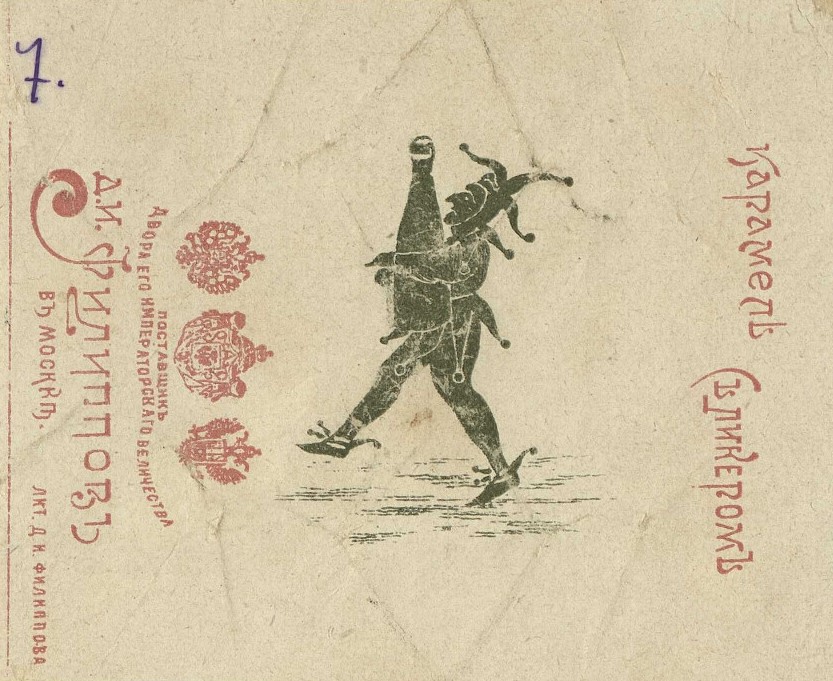 7.
Карамель
съ ликеромъ
ПОСТАВЩИКЪ
ДВОРА ЕГО ИМПЕРАТОРСКАГО ВЕЛИЧЕСТВА
Д.И. Филипповъ
ВЪ МОСКВѢ.
ЛИТ. Д. И. ФИЛИППОВА